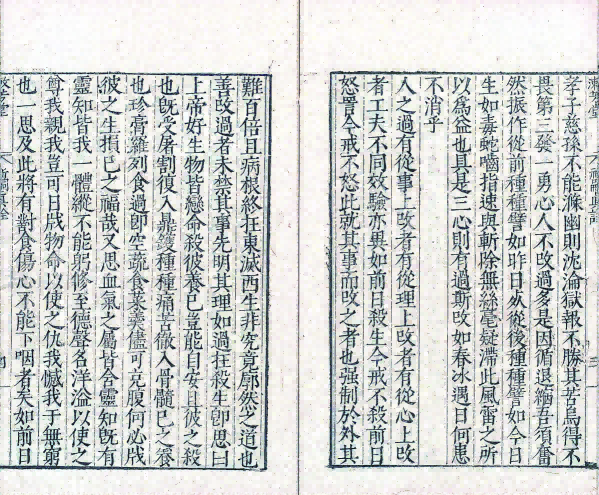 孝子慈孫不能滌幽則沈淪獄報不勝其苦烏得不
畏第三發一勇心人不改過多是因循退縮吾須奮
然振作從前種種譬如昨日死從後種種譬如今日
生如毒蛇嚙指速與斬除無絲毫疑滯此風雷之所
以為益也具是三心則有過斯改如春冰遇日何患
不消乎
人之過有從事上改者有從理上改者有從心上改
者工夫不同效驗亦異如前日殺生今戒不殺前日
怒詈今戒不怒此就其事而改之者也强制於外其
難百倍且病根終在東滅西生非究竟廓然之道也
善改過者未禁其事先明其理如過在殺生即思曰
上帝好生物皆戀命殺彼養己豈能自安且彼之殺
也既受屠割復入鼎鑊種種痛苦徹入骨髓己之養
也珍膏羅列食過即空蔬食菜羹儘可充腹何必戕
彼之生損己之福哉又思血氣之屬皆含靈知既有
靈知皆我一體縱不能躬修至德聲名洋溢以使之
尊我親我豈可日戕物命以使之仇我憾我于無窮
也一思及此將有對食傷心不能下咽者矣如前日